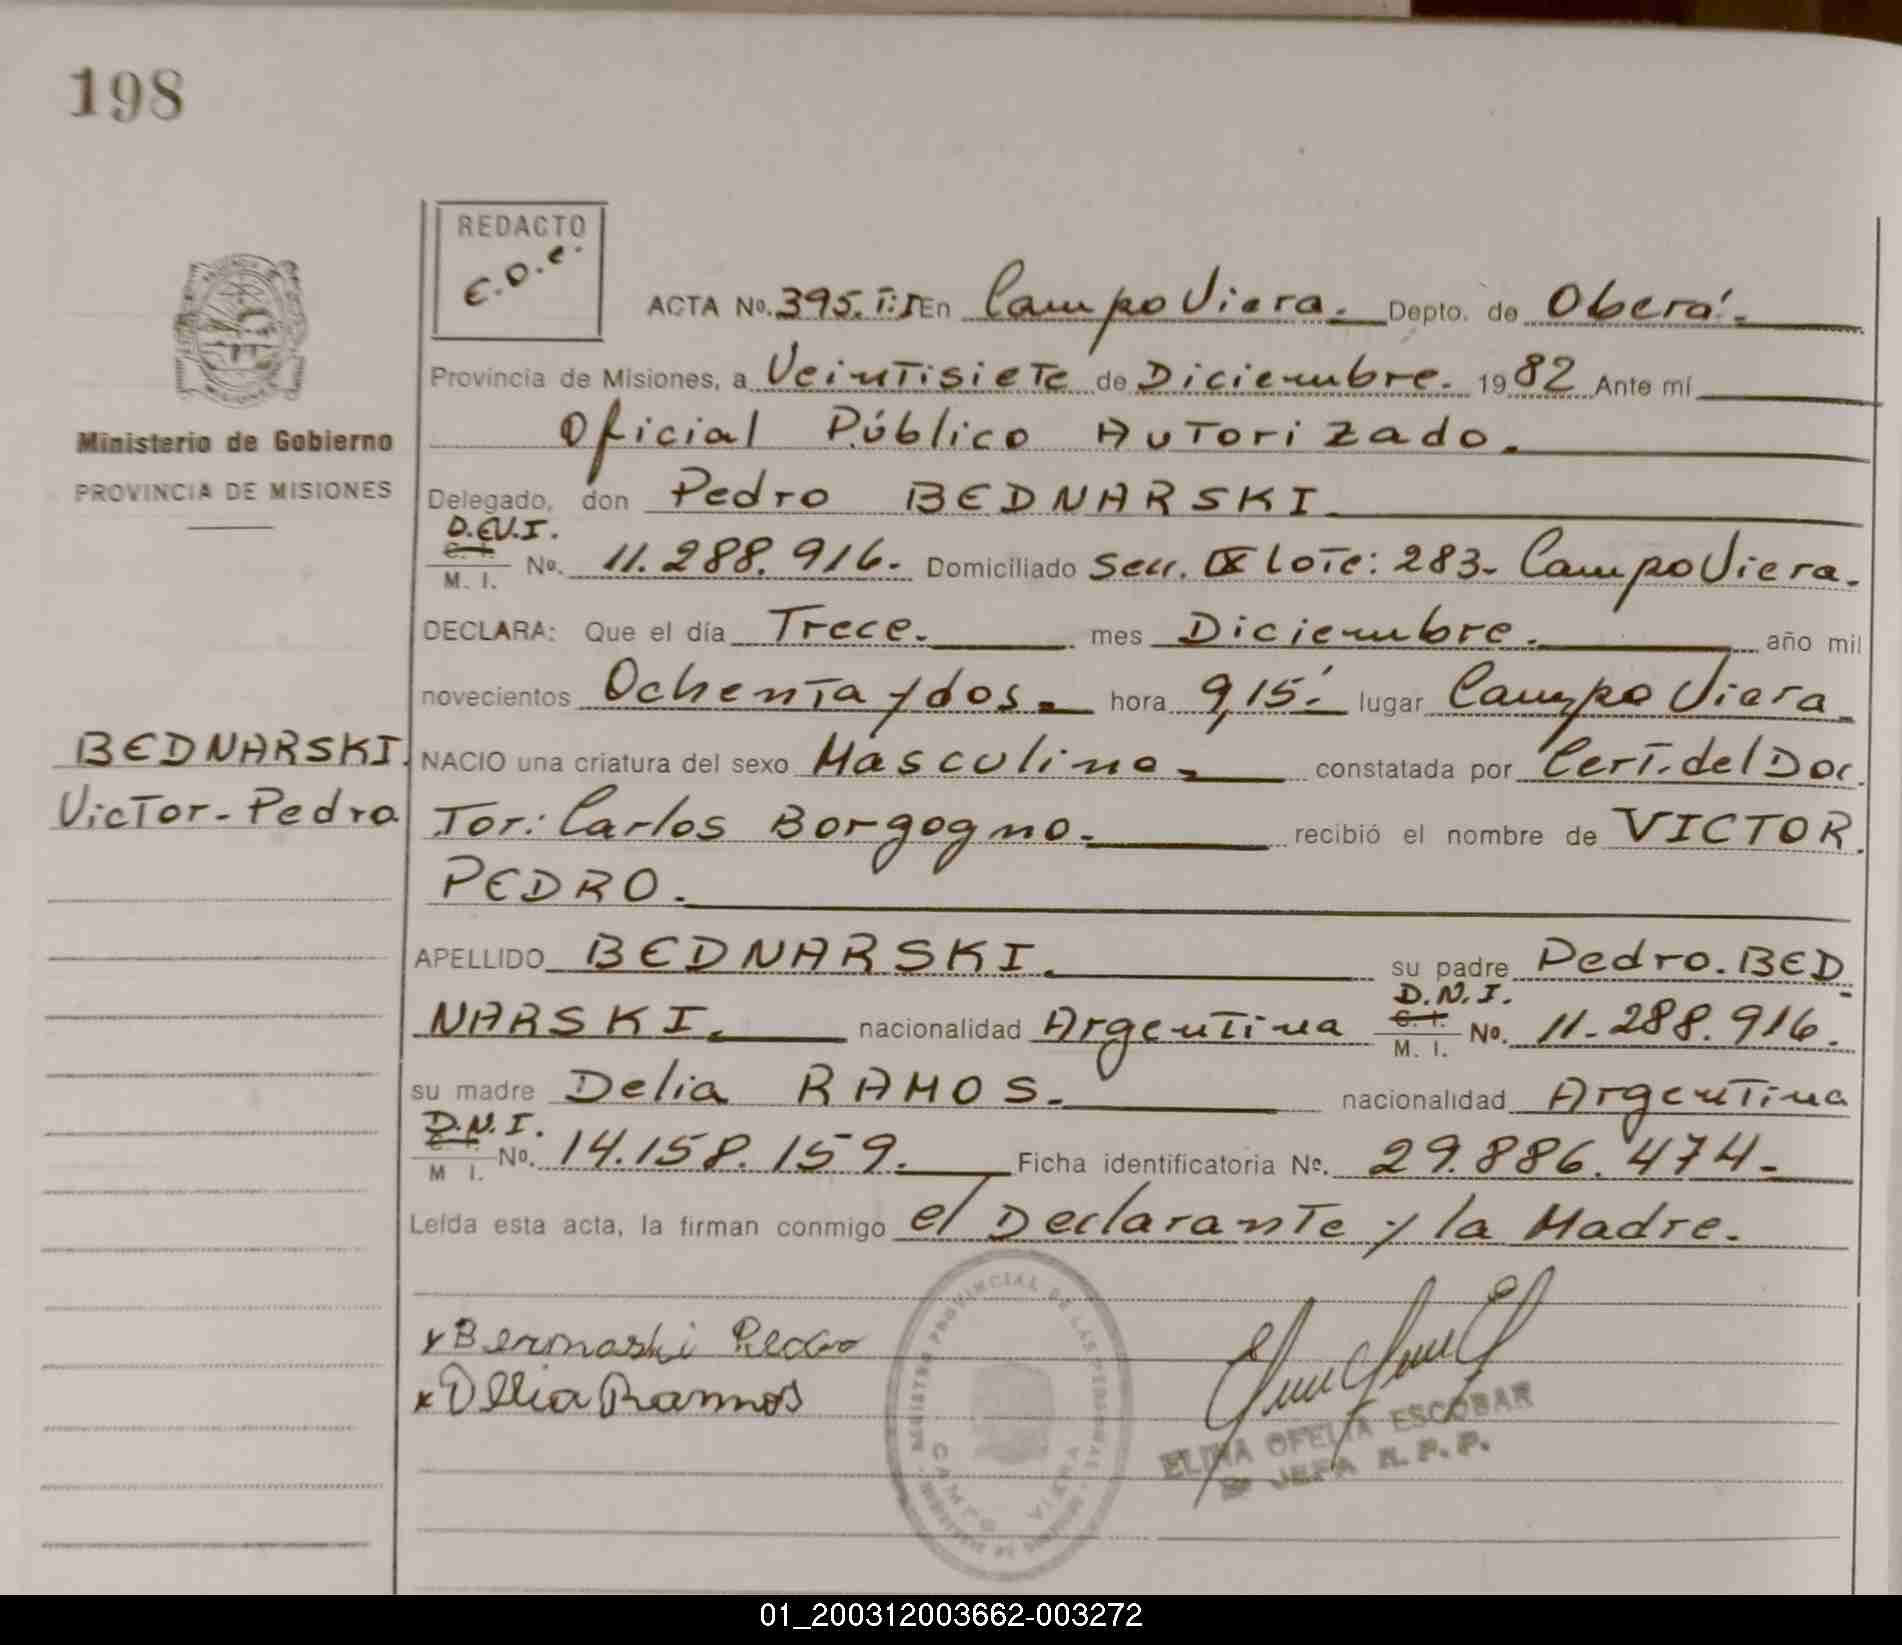 198
REDACTO
E.O.E.
ACTA No. 395. T:I En Campo Viera. Depto. de Oberá.
Provincia de Misiones, a Veintisiete de Diciembre. 1982 Ante mí
Oficial Público Autorizado.
Ministerio de Gobierno
PROVINCIA DE MISIONES
Delegado, don Pedro BEDNARSKI.
D.N.I.
C. I.
M. I. No. 11.288.916. Domiciliado Secc. IX Lote: 283- Campo Viera.
DECLARA: Que el día Trece. mes Diciembre. año mil
novecientos Ochenta y dos. hora 9,15' lugar Campo Viera
BEDNARSKI.
Victor-Pedro
NACIO una criatura del sexo Masculino. constatada por Cert. del Doc
Tor: Carlos Borgogno. recibió el nombre de VICTOR
PEDRO.
APELLIDO BEDNARSKI. su padre Pedro. BED
NARSKI. nacionalidad Argentina D.N.I. C. I. M. I. No. 11-288.916.
su madre Delia RAMOS. nacionalidad Argentina
D.N.I.
C. I.
M I. No. 14.158.159. Ficha identificatoria No. 29.886.474-
Leída esta acta, la firman conmigo el Declarante y la Madre.
x Bernaski Pedro
x Delia Ramos
REGISTRO PROVINCIAL DE LAS PERSONAS
CAMPO VIERA
ELINA OFELIA ESCOBAR
JEFA R. P. P.
01_200312003662-003272